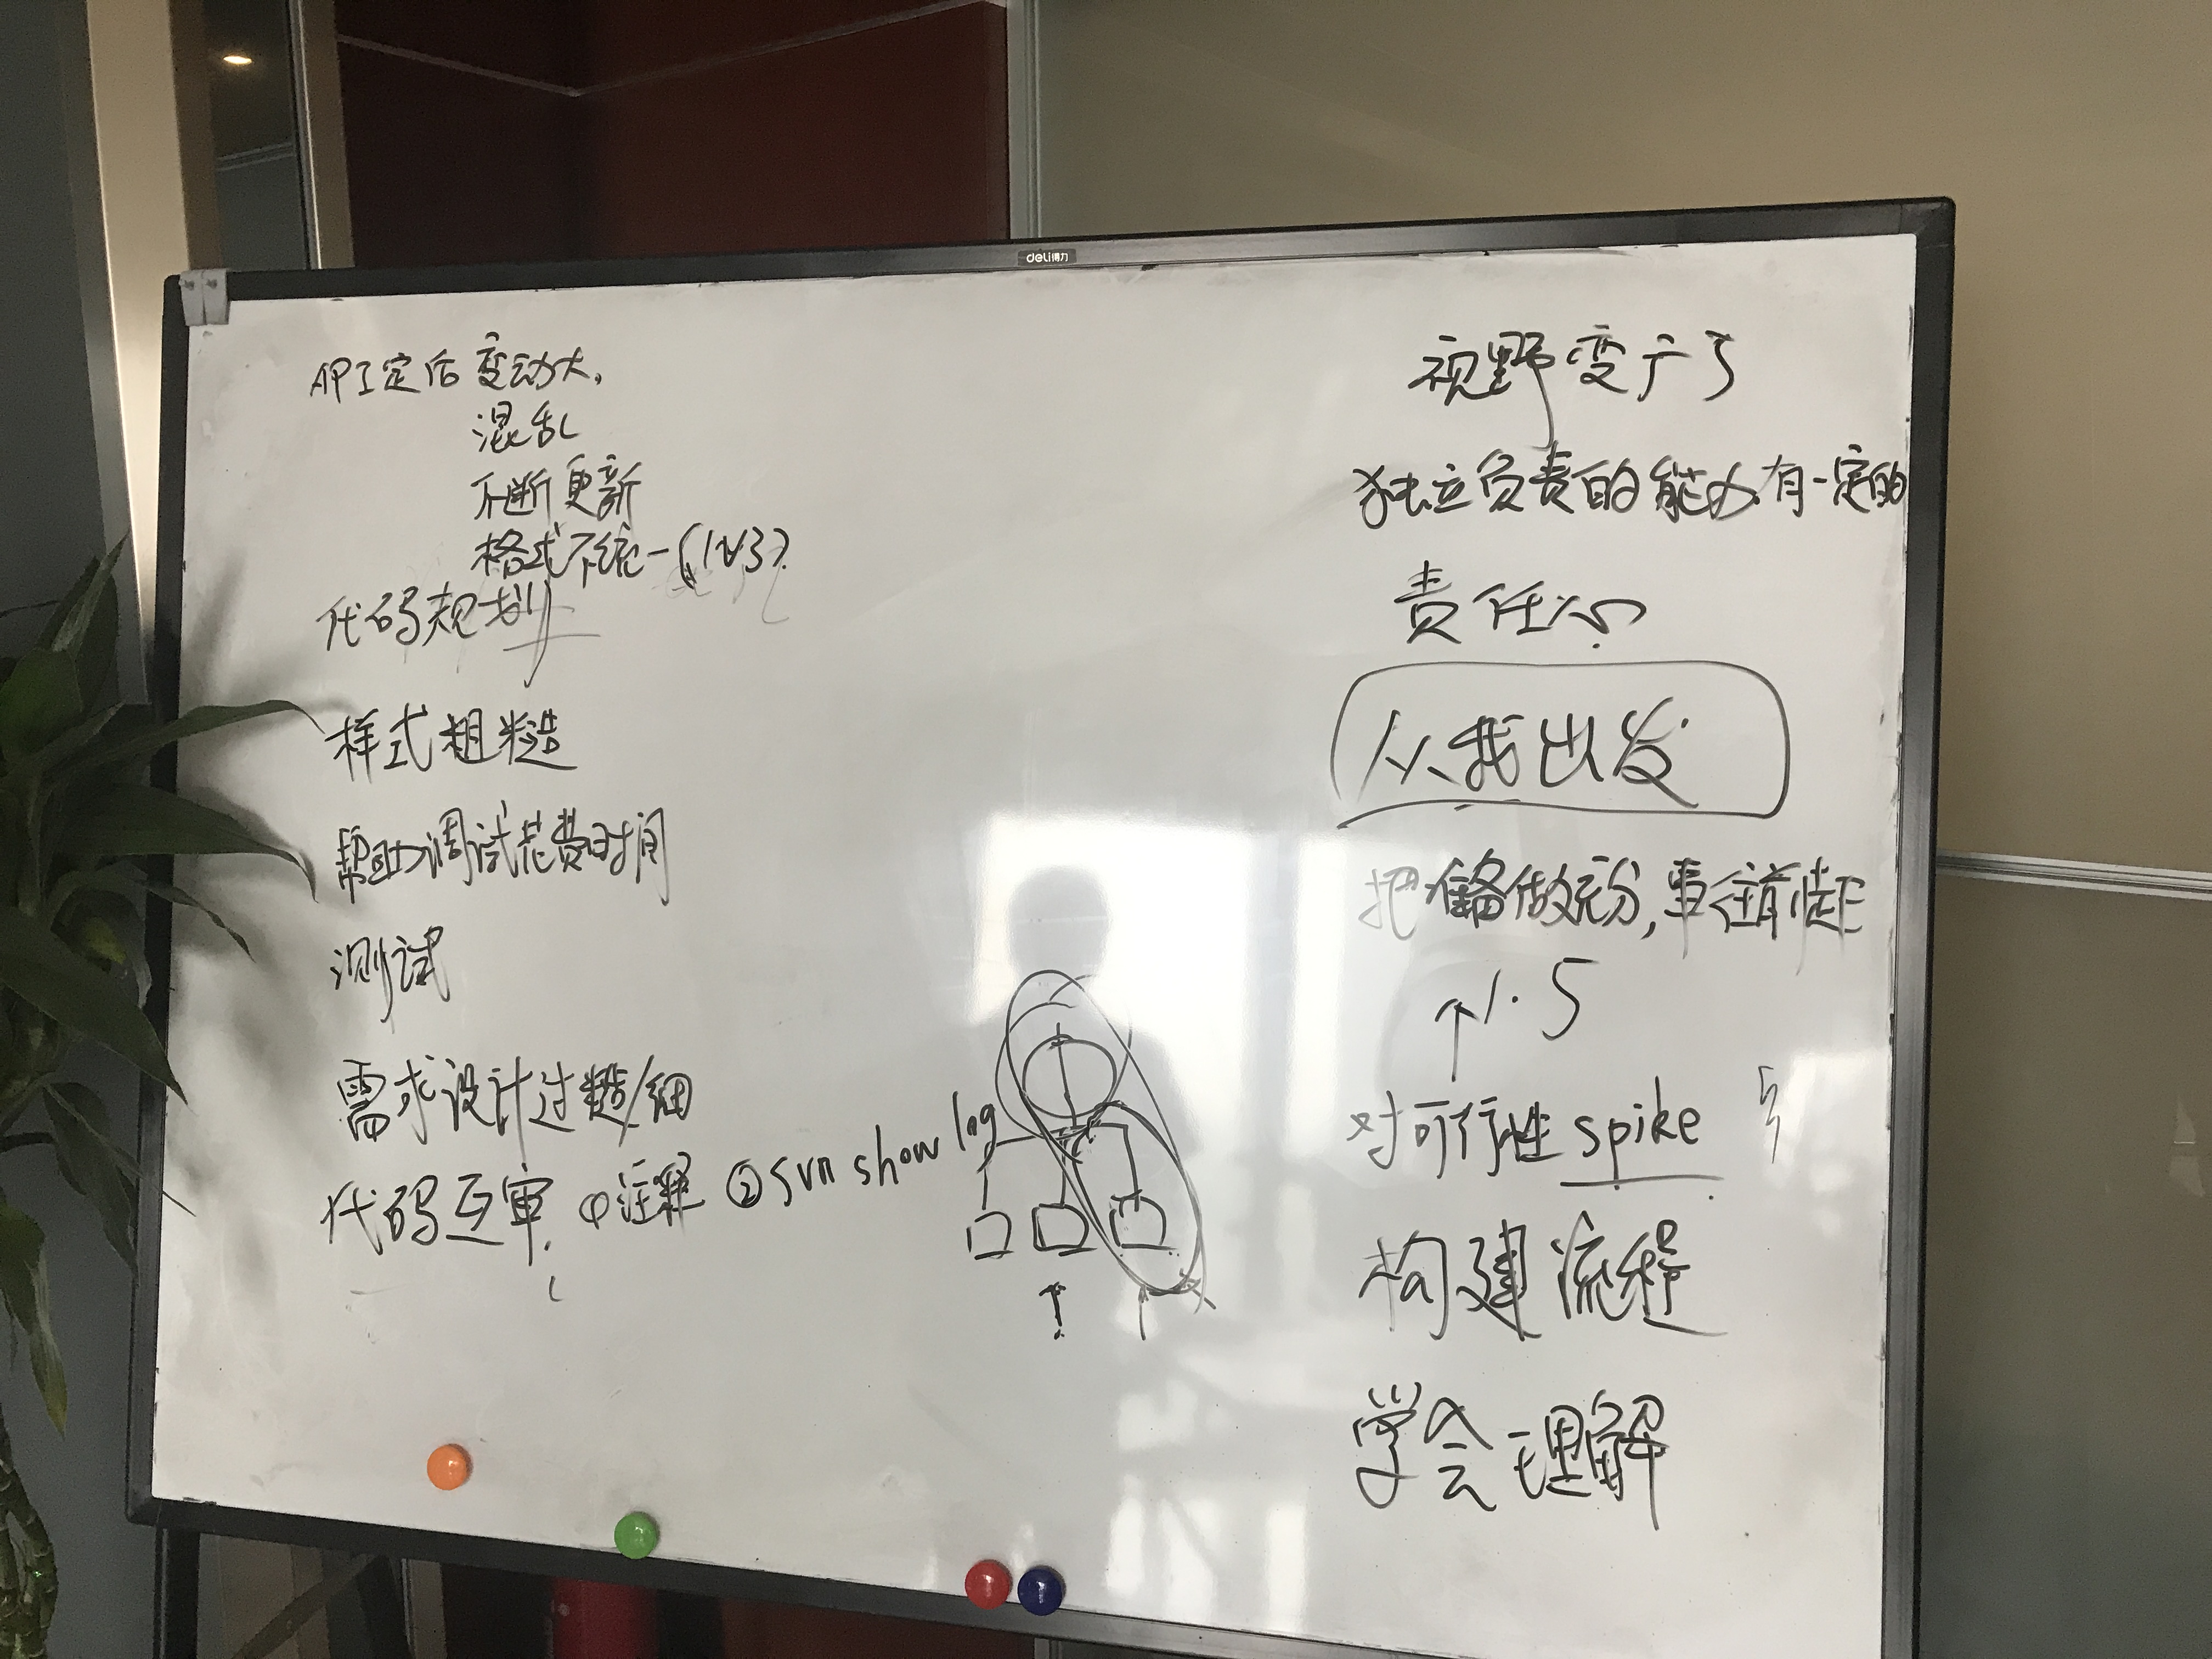 deli得力
API定后变动大,
混乱
不断更新
格式不统一(1V3)
代码规划
样式粗糙
帮助调试花费时间
测试
需求设计过糙/细
代码互审. ①注释 ②svn show log
视野变广了
独立负责的能力有一定的
责任心
从我出发
把准备做充分,事往前赶
↑1.5
对可行性spike
构建流程
学会理解